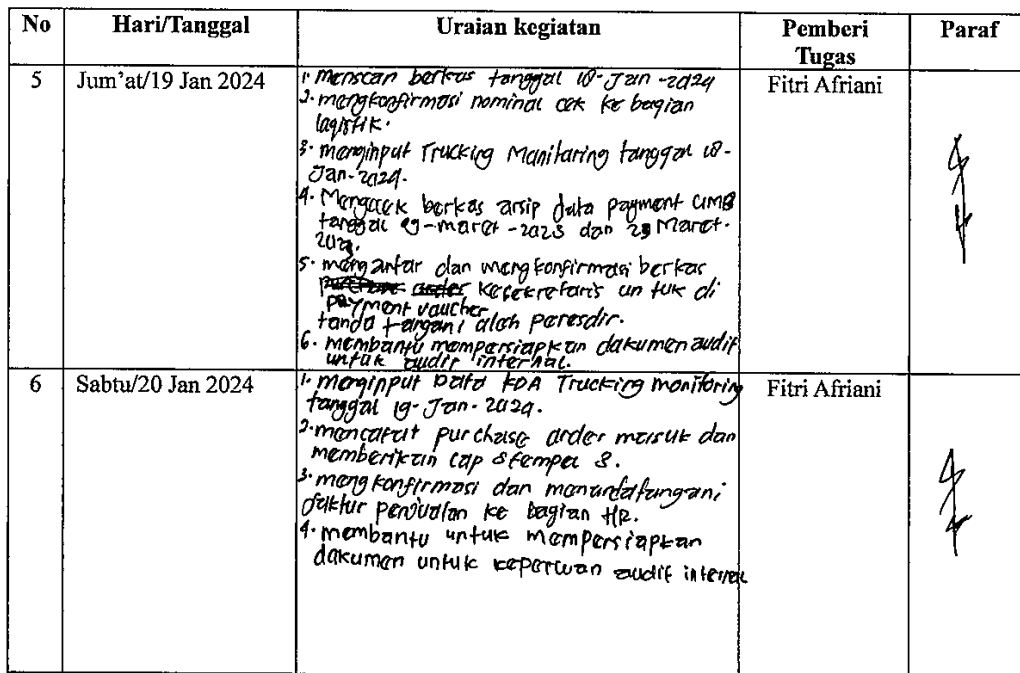 No Hari/Tanggal Uraian kegiatan Pemberi Tugas Paraf
5 Jum'at/19 Jan 2024 Fitri Afriani
1. menscan berkas tanggal 18-Jan-2024
2. mengkonfirmasi nominal cek ke bagian
logistik.
3. menginput Trucking Monitoring tanggal 18-
Jan-2024.
4. Mengecek berkas arsip data payment CIMB
tanggal 29-maret-2023 dan 29 Maret-
2023.
5. mengantar dan mengkonfirmasi berkas
kesekretaris untuk di
payment voucher
tanda tangani oleh peresdir.
6. membantu mempersiapkan dokumen audit
untuk audit internal.
6 Sabtu/20 Jan 2024 Fitri Afriani
1. menginput Data KDA Trucking monitoring
tanggal 19-Jan-2024.
2. mencatat purchase order masuk dan
memberikan cap stempel 8.
3. mengkonfirmasi dan menandatangani
faktur penjualan ke bagian HR.
4. membantu untuk mempersiapkan
dokumen untuk keperluan audit internal